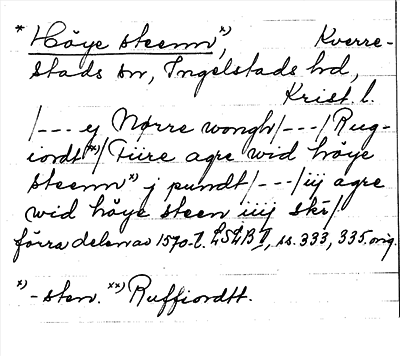 * Höye steenn x), Kverre-
stads sn, Ingelstads hd,
Krist. l.
/--- ej Nørre wongh/---/Rug-
iordt xx)/Fiire agre wid höye
steenn x) j pundt/---/iij agre
wid höye steen iiij skr/
förra delen av 1570-t. LSLB II, ss. 333, 335. orig.
x) -sten. xx) Ruffiordtt.